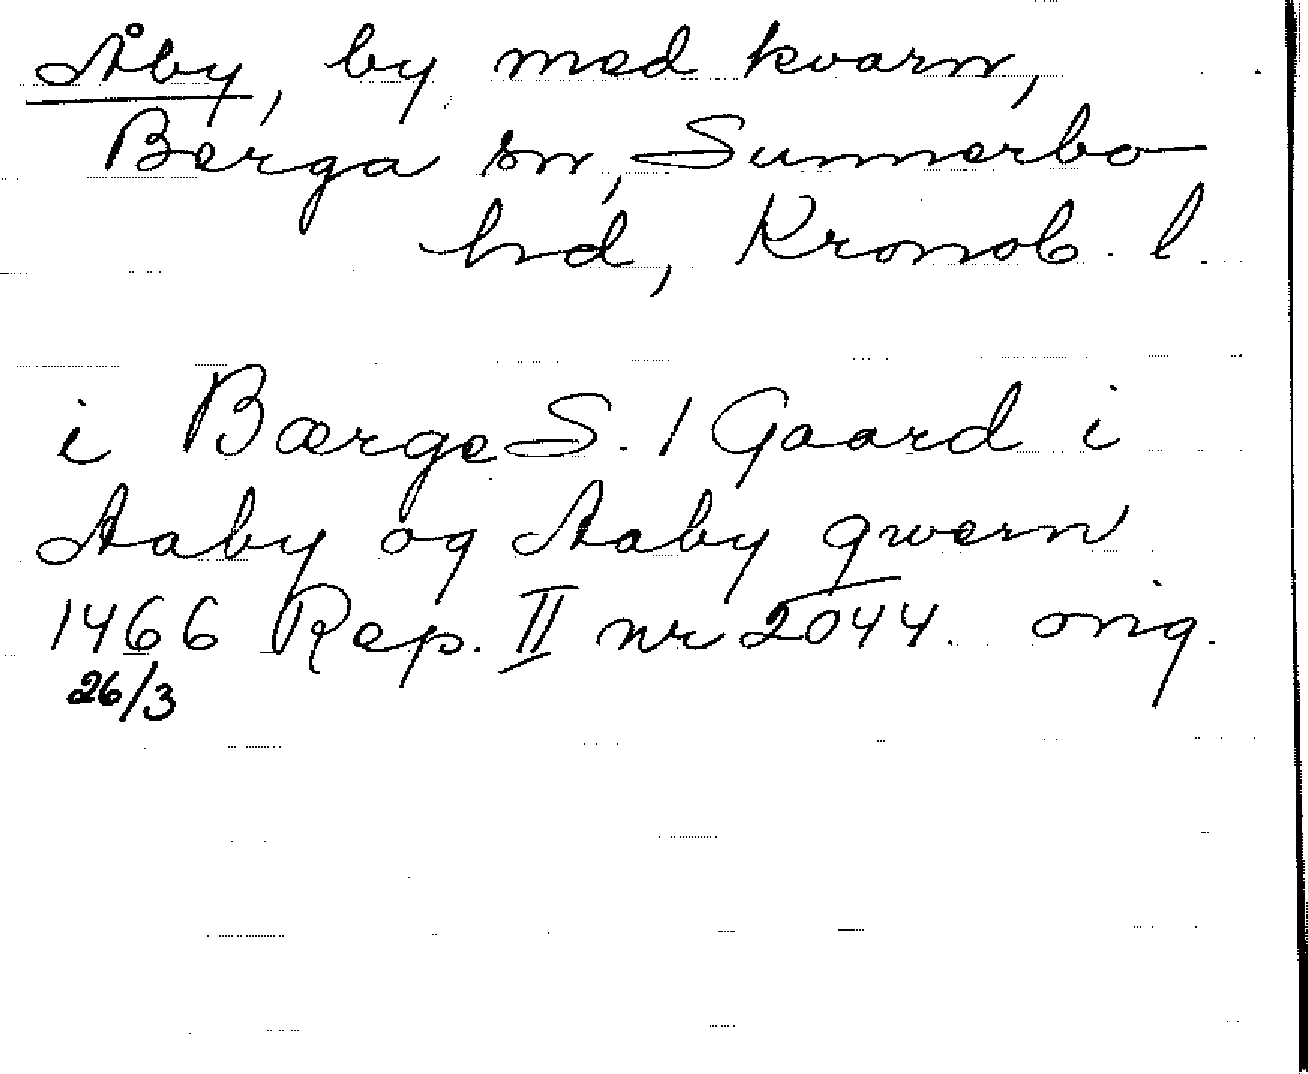 Åby, by med kvarn,
Berga sn, Sunnerbo
hd, Kronob. l.
i Bærge S. 1 Gaard i
Aaby og Aaby qwern
1466 Rep. II nr 2044. orig.
26/3